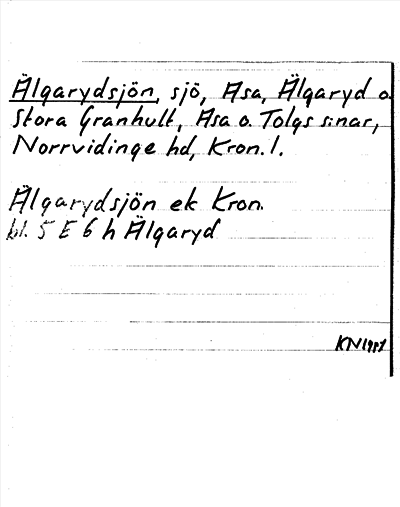 Älgarydsjön, sjö, Asa, Älgaryd o.
Stora Granhult, Asa o. Tolgs s:nar,
Norrvidinge hd, Kron. l.
Älgarydsjön ek Kron.
bl. 5 E 6 h Älgaryd
KN